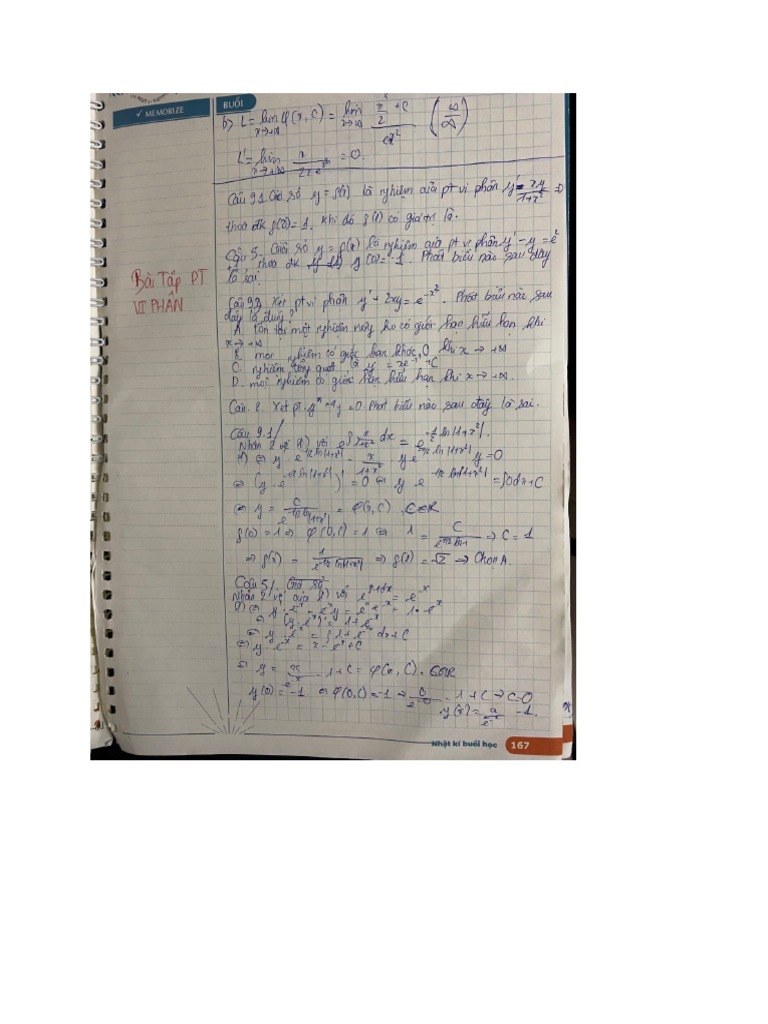 ✓ MEMORIZE
BUỔI
b> L = lim φ(x, C) = lim x²/2 + C / e^x² (∞/∞)
x→+∞ x→+∞
L' = lim x / 2x e^x² = 0.
x→+∞
Câu 9.1. Giả sử y = f(x) là nghiệm của pt vi phân y' - xy/1+x² = 0
thoả đk f(0) = 1. Khi đó f(1) có giá trị là.
Câu 5. Giả sử y = f(x) là nghiệm của pt vi phân y' - y = e^x
thoả đk y(0) = -1. Phát biểu nào sau đây
là sai.
Bài Tập PT
VI PHÂN
Câu 9.2. Xét pt vi phân y' + 2xy = e^-x². Phát biểu nào sau
đây là đúng?
A. tồn tại một nghiệm có giới hạn hữu hạn khi
x → +∞
mọi nghiệm có giới hạn khác 0 khi x → +∞
C. nghiệm tổng quát là y = xe + C
D. mọi nghiệm có giới hạn hữu hạn khi x → +∞.
Câu 8. Xét pt. y = 0 Phát biểu nào sau đây là sai.
Câu 9.1/
Nhân 2 vế với e^∫ x/1+x² dx = e^-1/2 ln|1+x²|.
⇔ y . e^-1/2 ln|1+x²| - x/1+x² y e^-1/2 ln|1+x²| y = 0
⇔ (y . e^-1/2 ln|1+x²|)' = 0 ⇔ y e^-1/2 ln|1+x²| = ∫0dx + C
⇔ y = C / e^-1/2 ln|1+x²| = φ(x, C) . C∈R
f(0) = 1 ⇒ φ(0, C) = 1 ⇔ 1 = C / e^-1/2 ln1 → C = 1
⇒ f(x) = 1 / e^-1/2 ln|1+x²| ⇒ f(1) = √2 → Chọn A.
Câu 5/. Giả sử
Nhân 2 vế của với e^∫-1dx = e^-x
⇔ y' . e^-x - e^-x y = e^x e^-x + 1. e^-x
⇔ (y . e^-x)' = 1 + e^-x
⇔ y . e^-x = ∫ 1 + e^-x dx + C
⇔ y . e^-x = x - e^-x + C
⇔ y = x / e^-x - 1 + C = φ(x, C) . C∈R
y(0) = -1 ⇔ φ(0, C) = -1 ⇒ 0 / e^-0 - 1 + C → C = 0
y(x) = x / e^-x - 1.
Nhật kí buổi học 167